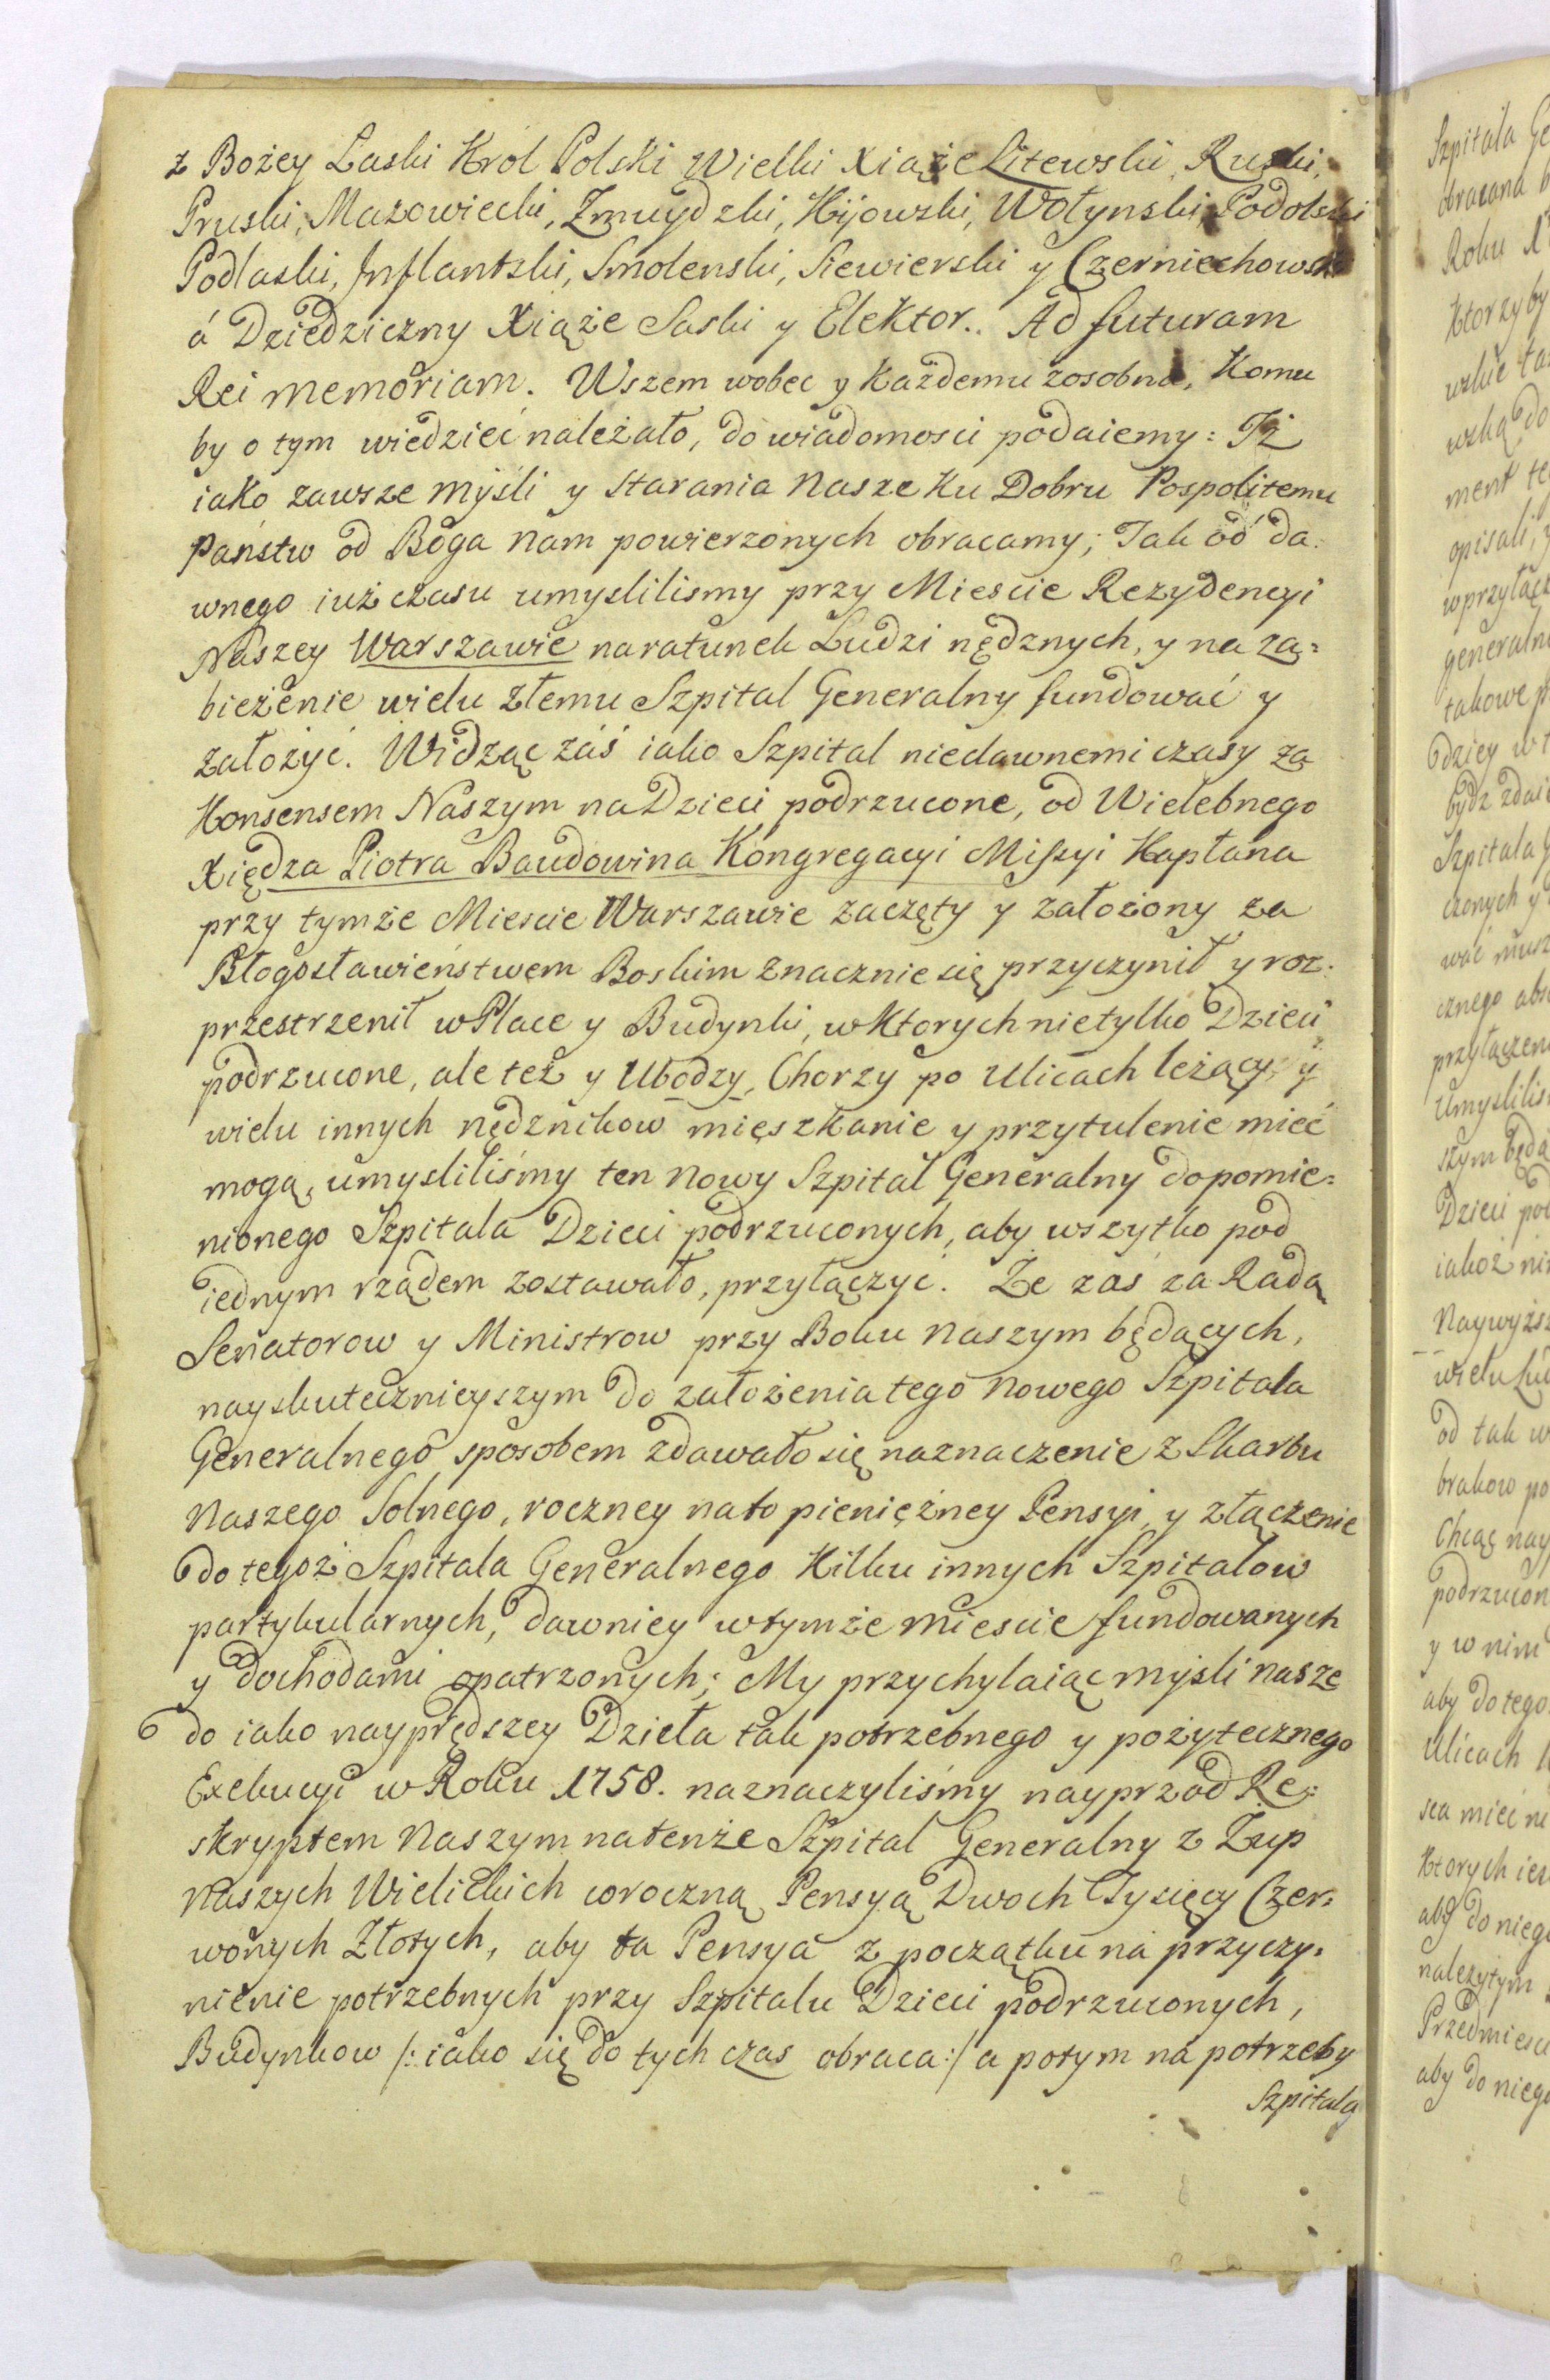 z Bożey Laski Krol Polski Wielki Xiąże Litewski, Ruski,
Pruski, Mazowiecki, Zmuydzki, Kijowski, Wołynski, Podolski
Podlaski, Inflantski, Smolenski, Siewierski y Czerniechowski
á Dziedziczny Xiąże Saski y Elektor.. Ad futuram
Rei memoriam. Wszem wobec y Każdemu zosobna, Komu
by o tym wiedzieć należało, do wiadomosci podaiemy: Iż
iako zawsze myśli y starania Nasze Ku Dobru Pospolitemu
Państw od Boga Nam powierzonych obracamy; Tak od da:
wnego iuż czasu umyslilismy przy Miescie Rezydencyi
Naszey Warszawie na ratunek Ludzi nędznych, y na za:
bieżenie wielu złemu Szpital Generalny fundować y
założyć. Widząc záś iako Szpital niedawnemi czasy za
Konsensem Naszym na Dzieci podrzucone, od Wielebnego
Xiędza Piotra Baudowina Kongregacyi Missyi Kapłana
przy tymże Miescie Warszawie zaczęty y założony za
Błogosławieństwem Boskim znacznie się przyczynił y roz:
przestrzenił w Place y Budynki, w Ktorych nietylko Dzieci
podrzucone, ale też y Ubodzy, Chorzy po Ulicach leżący, y
wielu innych nędznikow mięszkanie y przytulenie mieć
mogą, umysliliśmy ten Nowy Szpital Generalny do pomie:
nionego Szpitala Dzieci podrzuconych, aby wszytko pod
iednym rządem zostawało, przyłączyć. Że zaś za Radą
Senatorow y Ministrow przy Boku Naszym będących,
nayskutecznieyszym do założenia tego Nowego Szpitala
Generalnego sposobem zdawało się naznaczenie z Skarbu
Naszego Solnego, roczney na to pieniężney Pensyi, y złączenie
do tegoż Szpitala Generalnego Kilku innych Szpitalow
partykularnych, dawniey w tymże Miescie fundowanych
y dochodami opatrzonych; My przychylaiąc myśli nasze
do iako nayprędszey Dzieła tak potrzebnego y pożytecznego
Exekucyi w Roku 1758. naznaczyliśmy nayprzod Re:
skryptem Naszym na tenże Szpital Generalny z Zup
Naszych Wielickich coroczną Pensyą Dwoch Tysięcy Czer:
wonych Złotych, aby ta Pensya z początku na przyczy:
nienie potrzebnych przy Szpitalu Dzieci podrzuconych,
Budynkow /: iako się do tych czas obraca :/ a potym na potrzeby
Szpitala